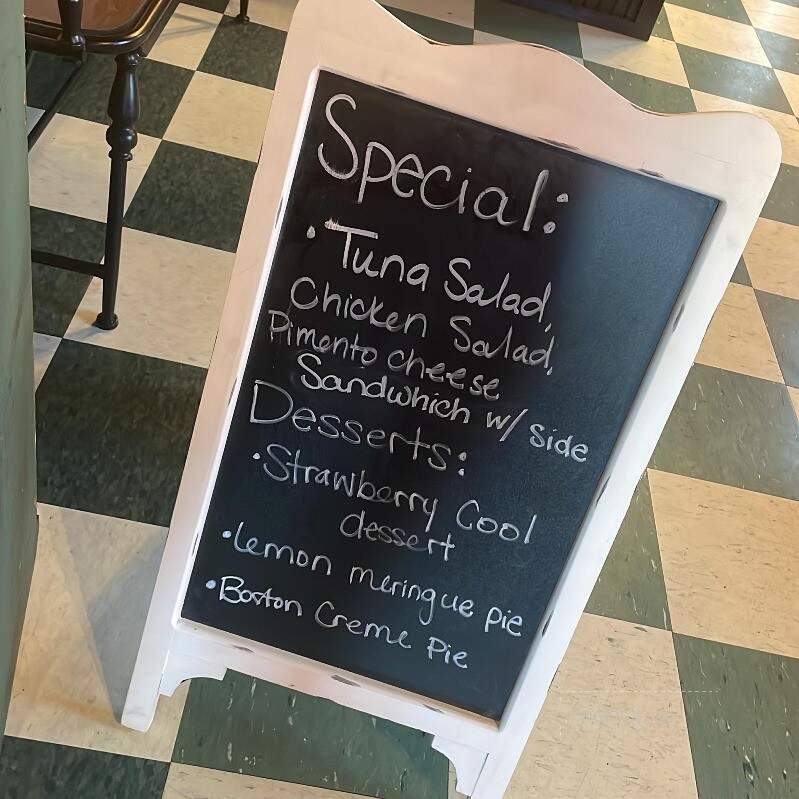 Special:
• Tuna Salad,
Chicken Salad,
Pimento cheese
Sandwhich w/ side
Desserts:
• Strawberry Cool
dessert
• Lemon meringue pie
• Boston Creme Pie